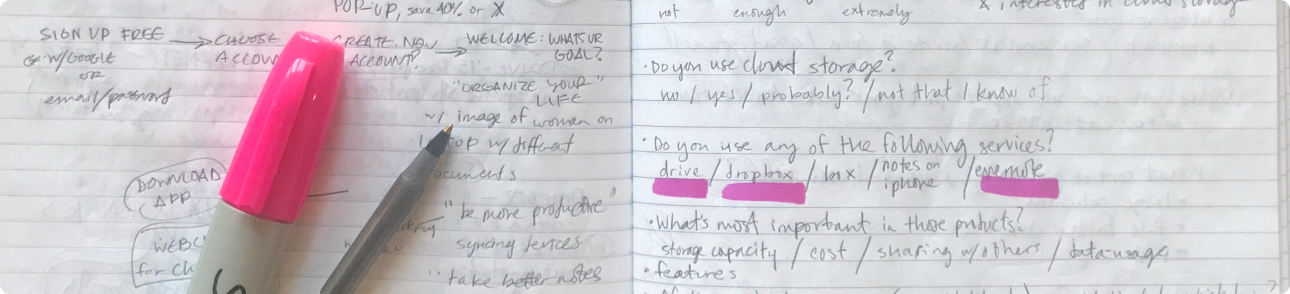 POP-UP, save 40% or X
SIGN UP FREE → CHOOSE CREATE NEW → WELCOME: WHATS UR
or w/Google ACCOUNT? GOAL?
or
email/password
"ORGANIZE YOUR"
LIFE
w/ image of woman on
w/ different
documents
DOWNLOAD
APP
"be more productive"
syncing devices
for Ch
"take better notes
not enough extremely
Do you use cloud storage?
no / yes / probably? / not that I know of
Do you use any of the following services?
drive / dropbox / box / notes on iphone / evernote
What's most important in those products?
storage capacity / cost / sharing w/others / data-usage
features